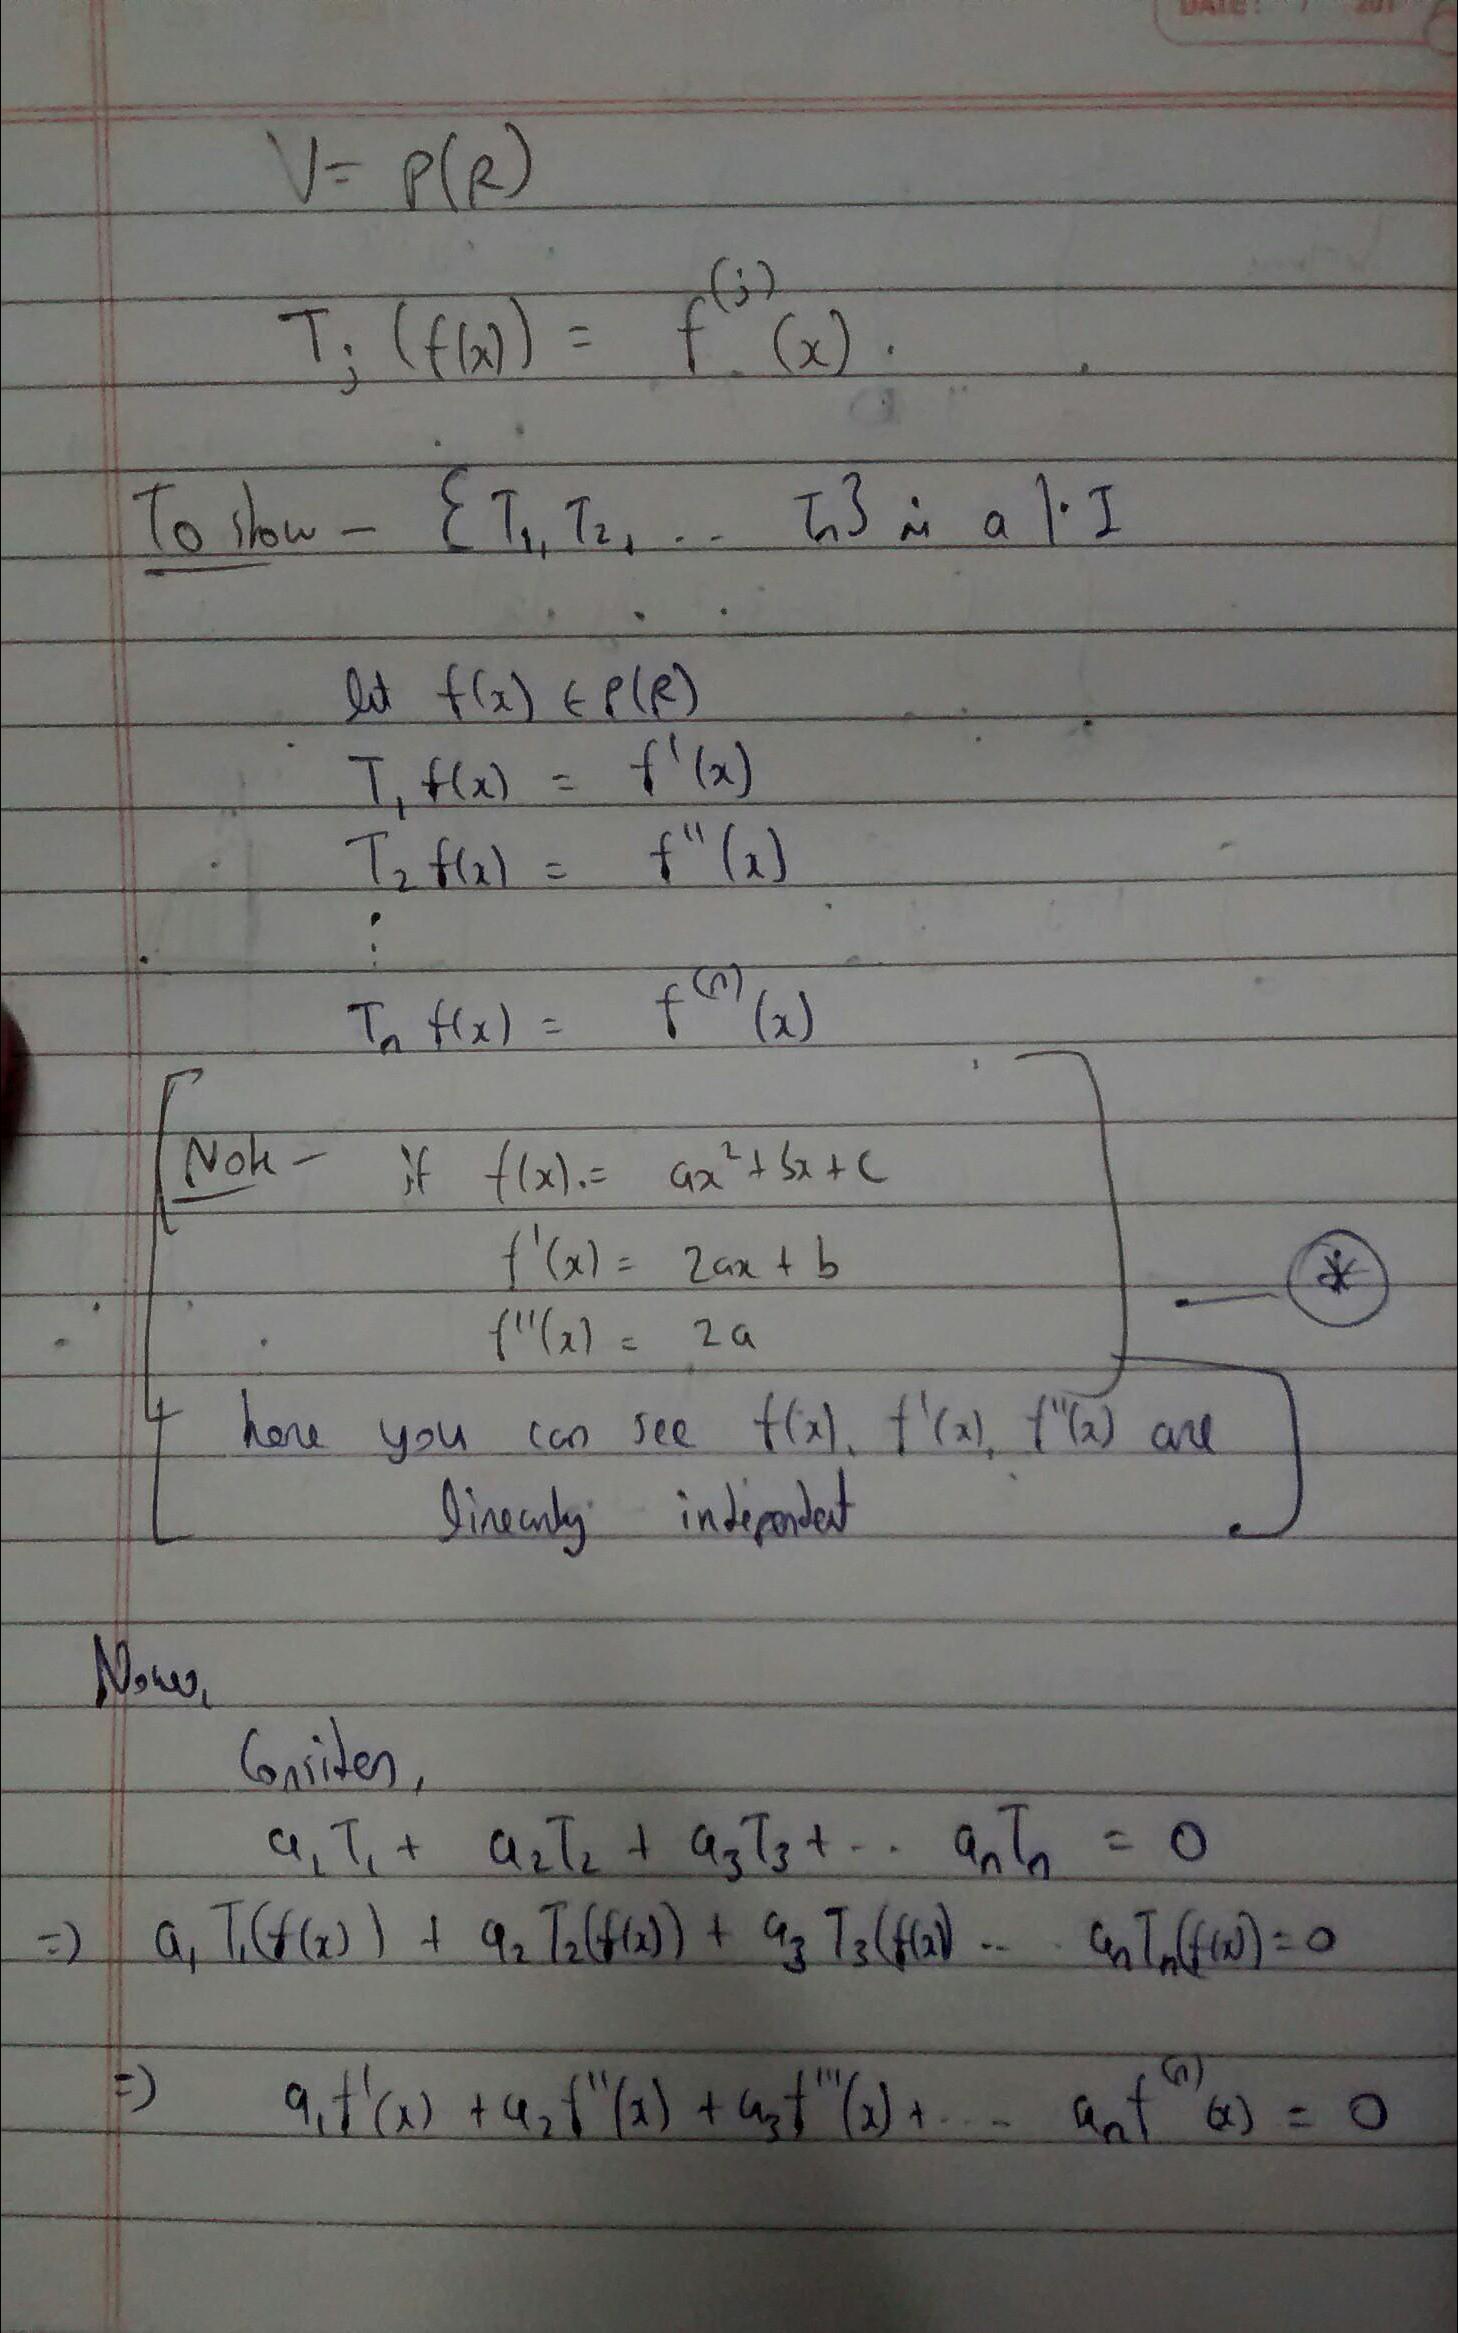 DATE: / 201
V = P(R)
T_j (f(x)) = f^(j) (x).
To show - {T_1, T_2, ... T_n} is a l.I
let f(x) ∈ P(R)
T_1 f(x) = f'(x)
T_2 f(x) = f''(x)
⋮
T_n f(x) = f^(n) (x)
Note - if f(x) = ax² + bx + c
f'(x) = 2ax + b
f''(x) = 2a
*
here you can see f(x), f'(x), f''(x) are
linearly independent
Now,
Consider,
a_1T_1 + a_2T_2 + a_3T_3 + ... a_nT_n = 0
=) a_1T_1(f(x)) + a_2T_2(f(x)) + a_3T_3(f(x) ... a_nT_n(f(x)) = 0
=) a_1f'(x) + a_2f''(x) + a_3f'''(x) + .... a_nf^(n)(x) = 0